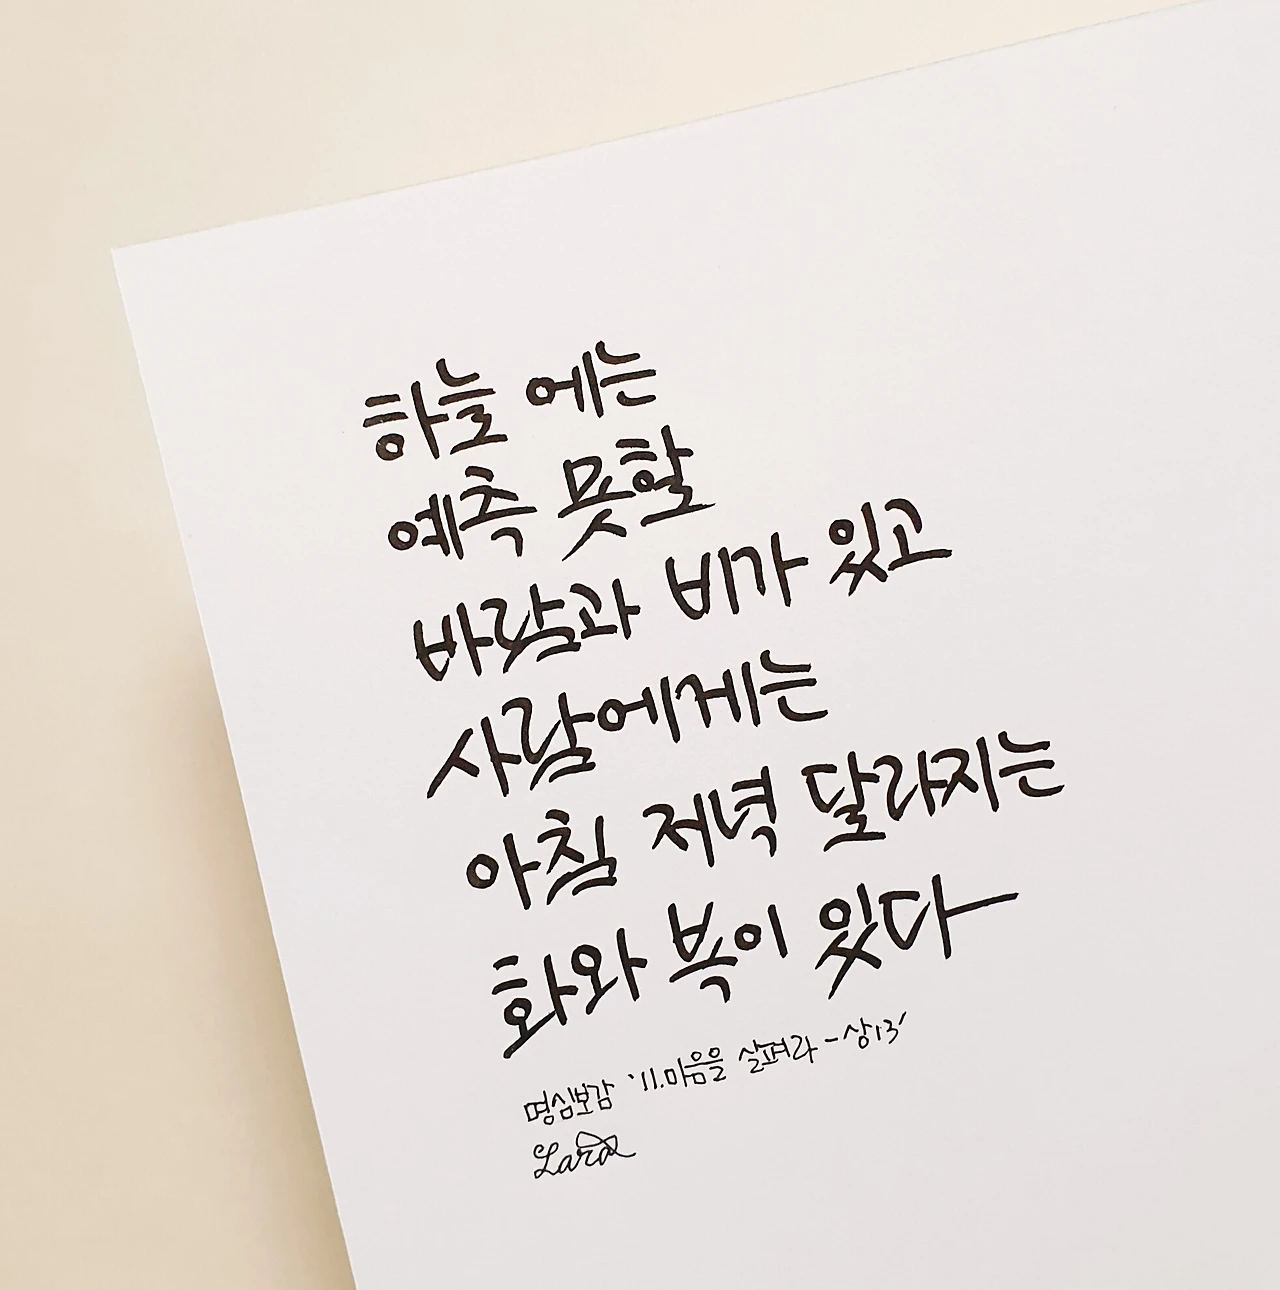 하늘 에는
예측 못할
바람과 비가 있고
사람에게는
아침 저녁 달라지는
화와 복이 있다
명심보감 '11.마음을 살펴라-상13'
Lara